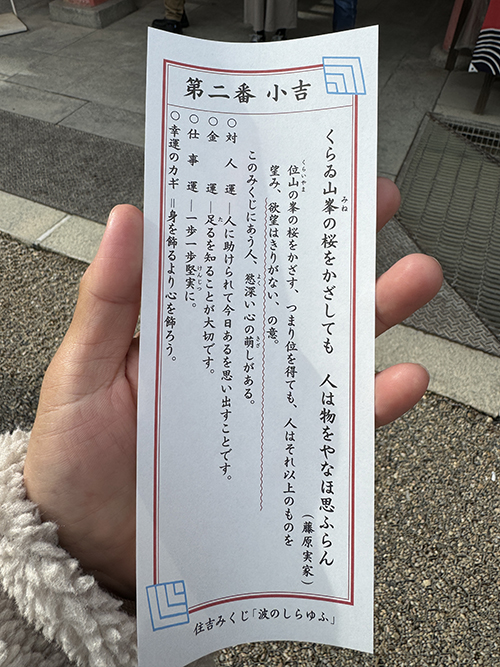 第二番 小吉
くらゐ山峯の桜をかざしても 人は物をやなほ思ふらん
みね
（藤原実家）
位山の峯の桜をかざす、つまり位を得ても、人はそれ以上のものを
くらいやま
望み、欲望はきりがない、の意。
このみくじにあう人、慾深い心の萌しがある。
よく
きざ
○対人運―人に助けられて今日あるを思い出すことです。
○金運―足るを知ることが大切です。
た
○仕事運―一歩一歩堅実に。
けんじつ
○幸運のカギ＝身を飾るより心を飾ろう。
住吉みくじ「波のしらゆふ」